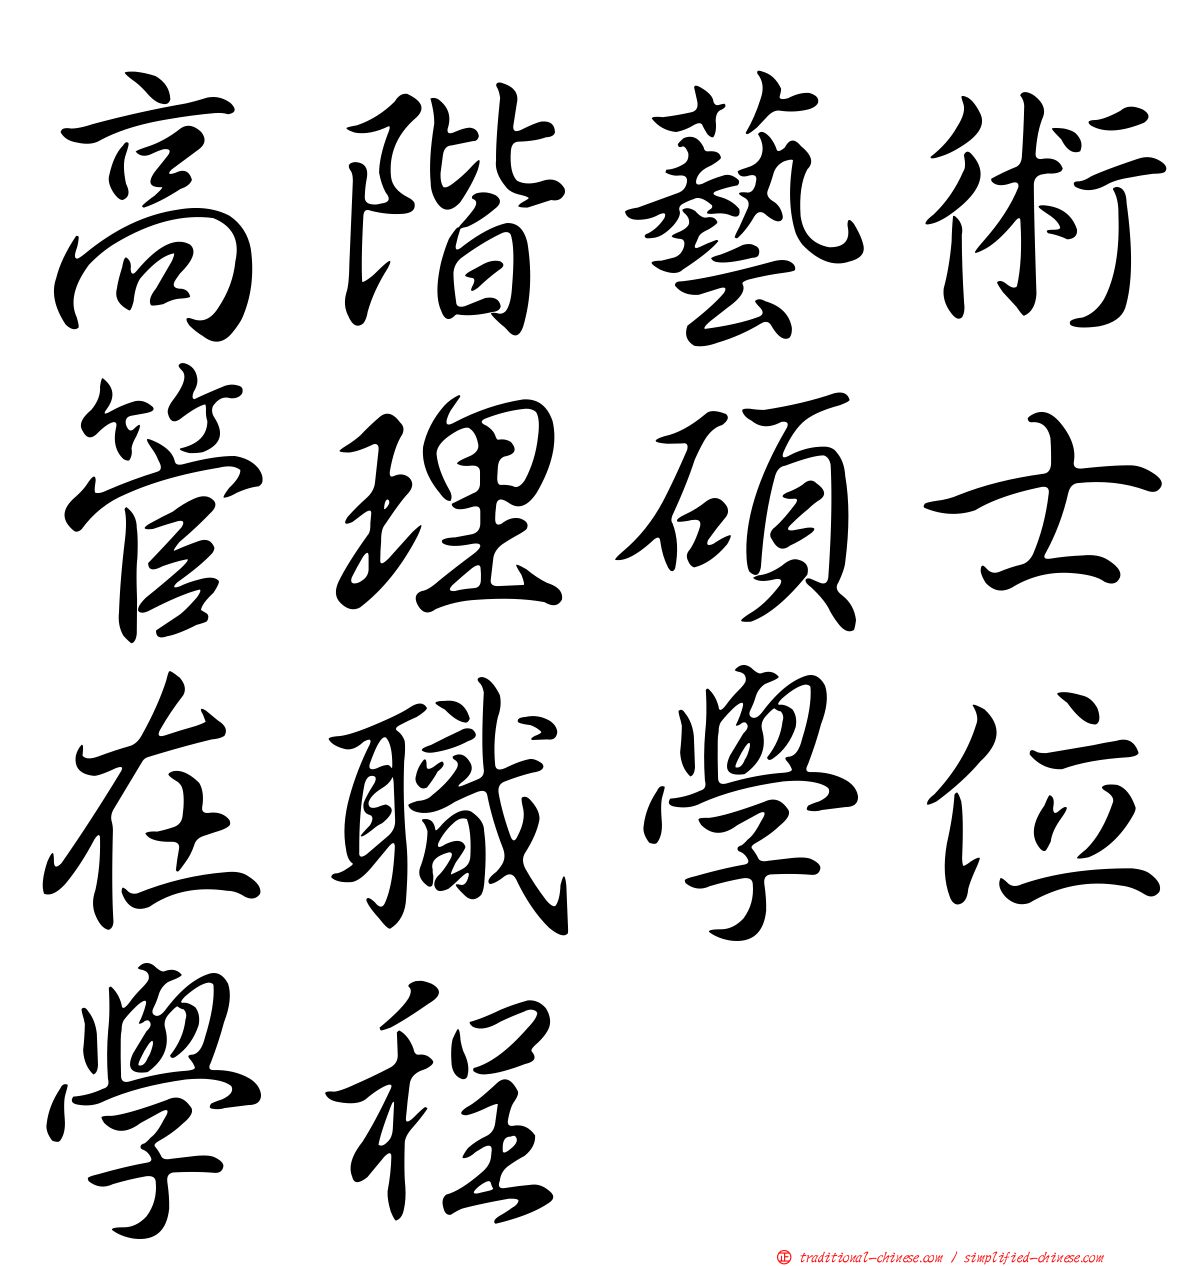 高階藝術
管理碩士
在職學位
學程
㊣ traditional-chinese.com / simplified-chinese.com